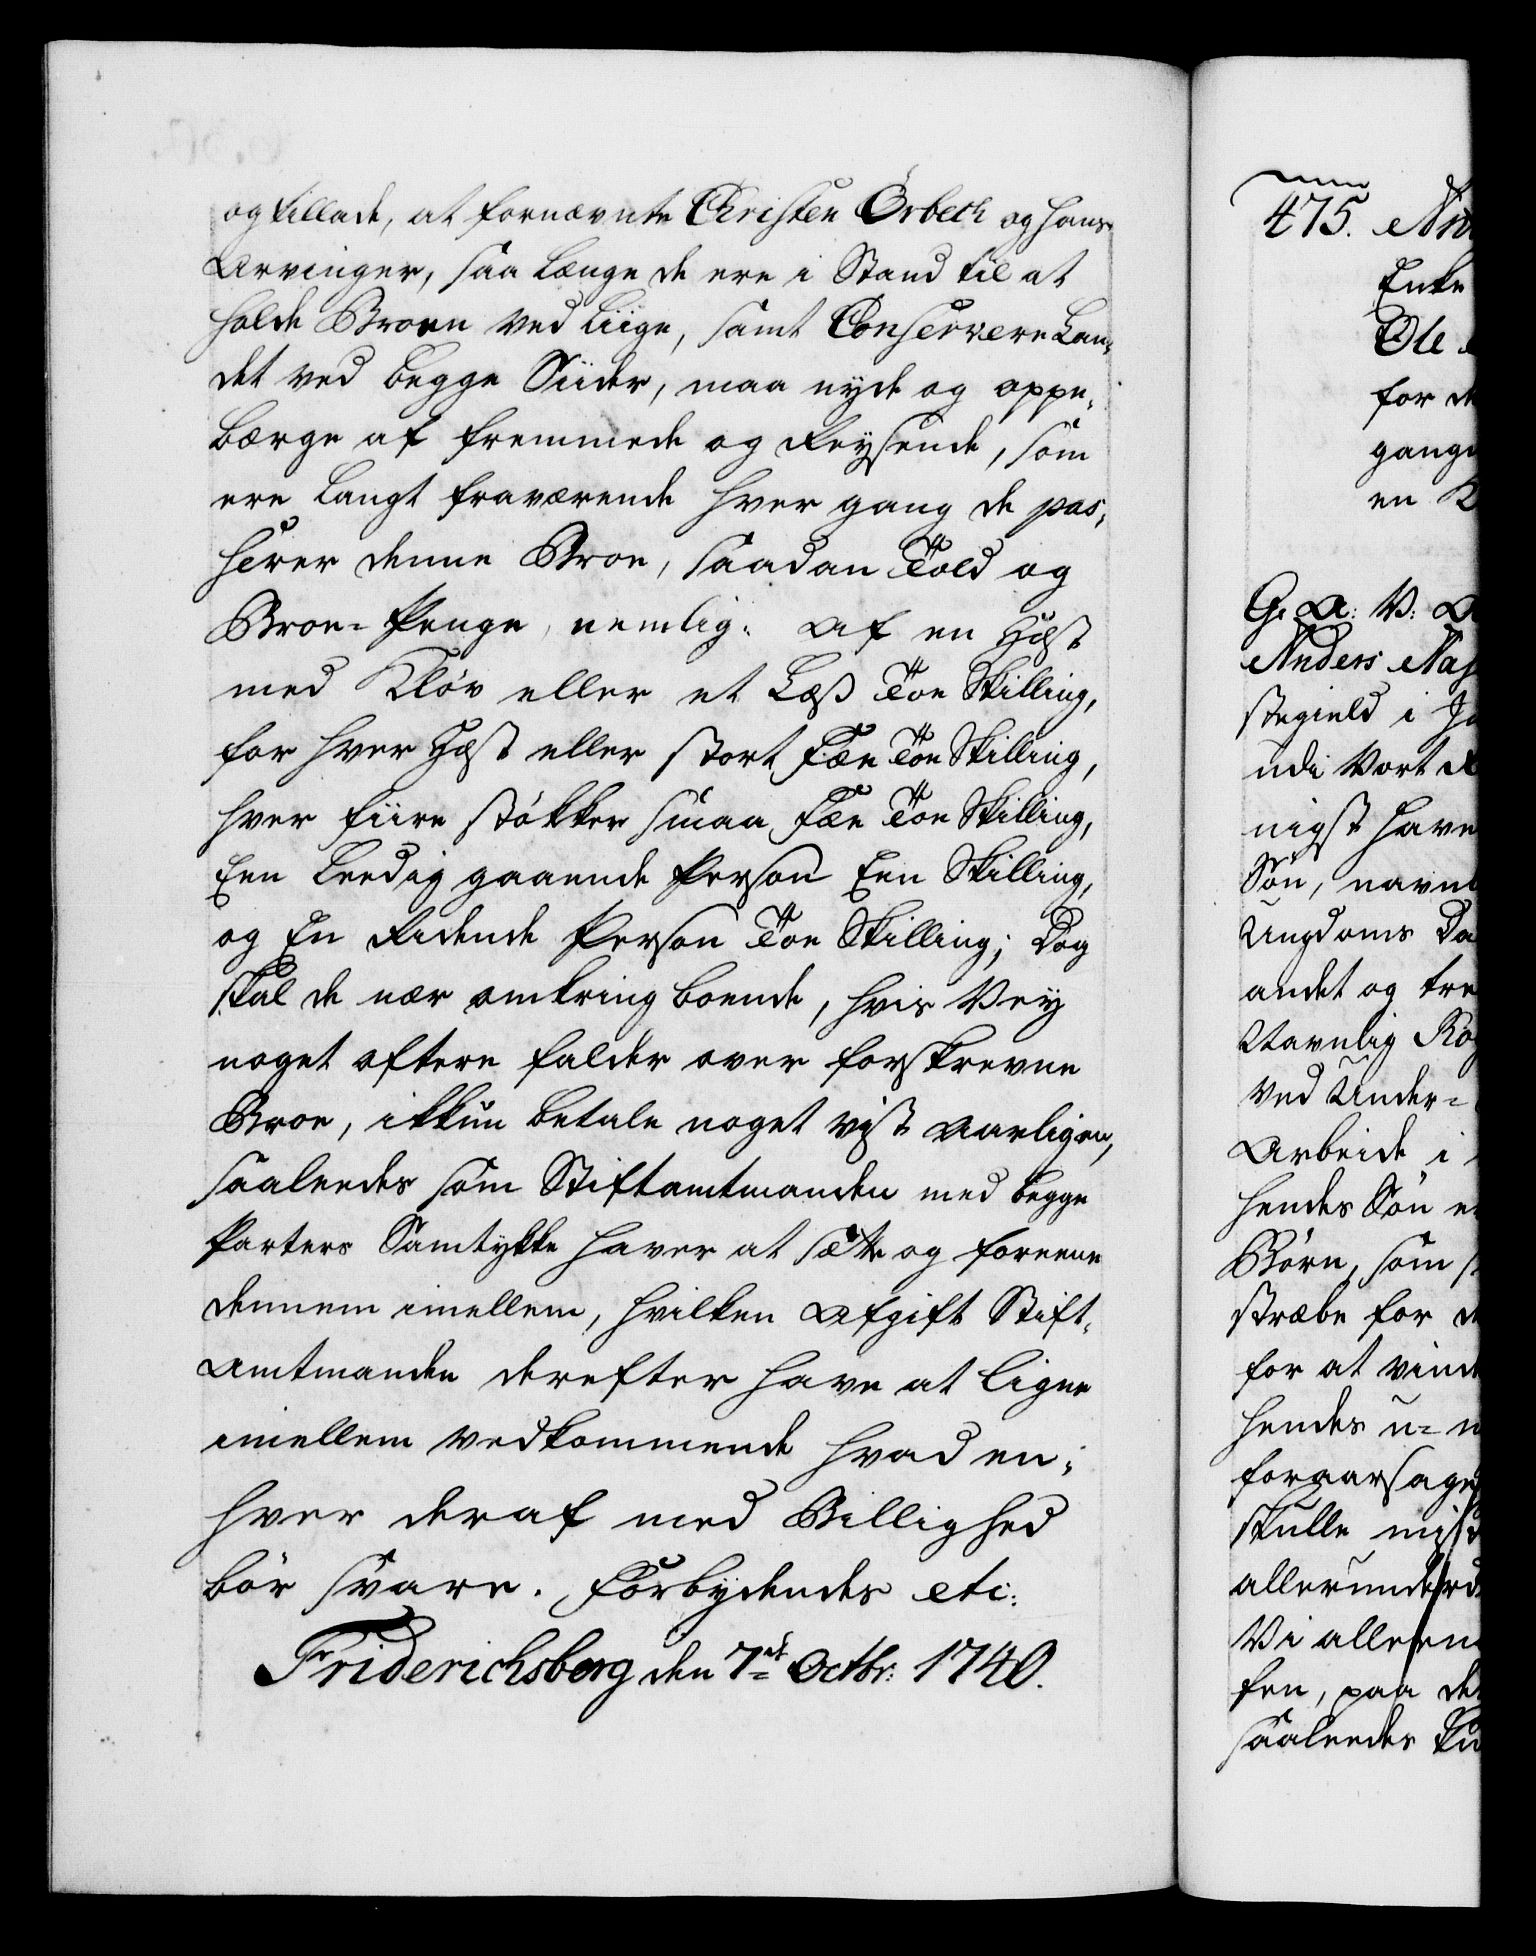 og tillade, at fornævnte Christen Örbech og hans
Arvinger, saa længe de ere i Stand til at
holde Broen ved liige, samt Conservere Lan-
det ved begge Siider, maa nyde og oppe-
bærge af fremmede og Reysende, som
ere langt fraværende hver gang de pas-
serer denne Broe, saadan Told og
Broe-Penge, nemlig: Af en Hæst
med Kløv eller et Læs Toe Skilling,
for hver Hæst eller stort Fæe Toe Skilling,
hver fiire støkker smaa Fæe Toe Skilling,
Een Leedig gaaende Person Een Skilling,
og En Ridende Person Toe Skilling; Dog
skal de nær omkring boende, hvis Vey
noget oftere falder over forskrevne
Broe, ikkun betale noget vist aarligen,
saaleedes som Stiftamtmanden med begge
Parters Samtykke haver at sætte og foreene
dennem imellem, hvilken Afgift Stift-
Amtmanden derefter have at ligne
imellem vedkommende hvad en-
hver deraf med Billighed
bör svare. Forbydendes etc:
Friderichsberg den 7de Octbr: 1740.
475.
Enke
Ole
for
en
G. A: V:
Anders
stegield i
udi Vort
nigst have
Søn,
Ungdoms
andet og
Navnlig
ved Under-
Arbeide i
hendes Søn
Børn, som
stræbe for
for at
hendes u-
skulle
Vi
paa
saaleedes